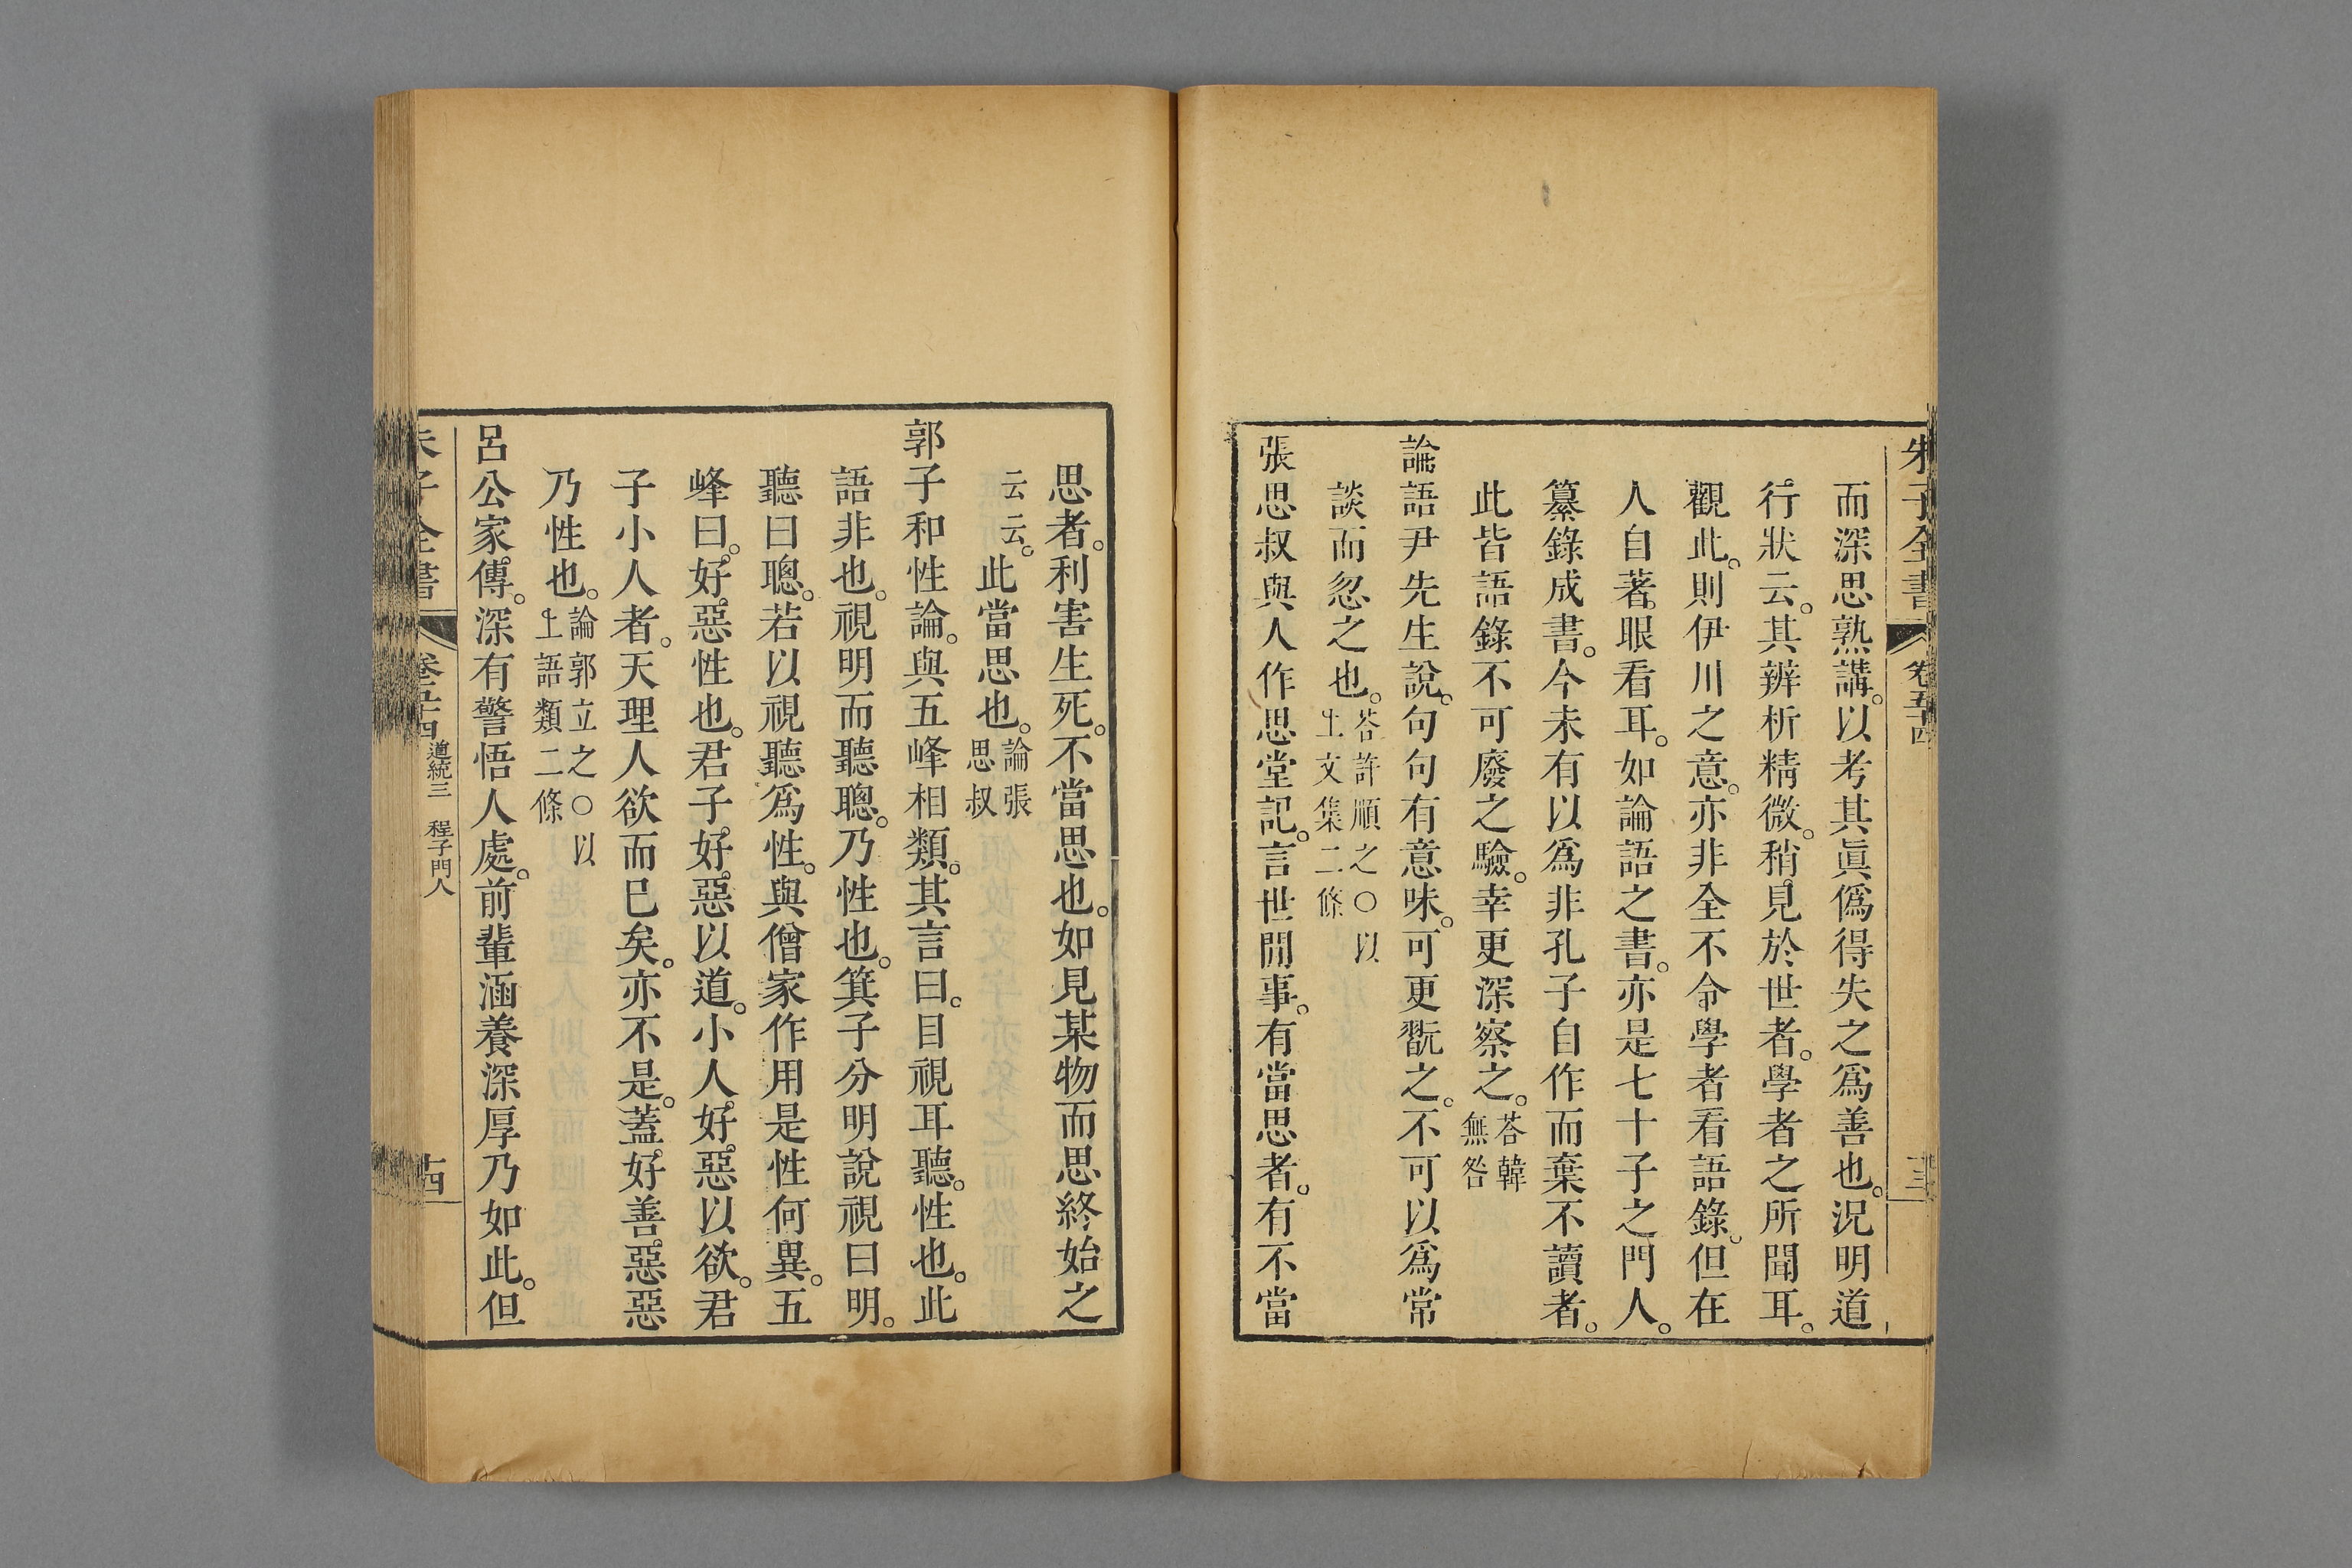 朱子全書 卷五十四 十三
而深思熟講。以考其眞僞得失之爲善也。況明道
行狀云。其辨析精微。稍見於世者。學者之所聞耳。
觀此。則伊川之意。亦非全不令學者看語錄。但在
人自著眼看耳。如論語之書。亦是七十子之門人。
纂錄成書。今未有以爲非孔子自作而棄不讀者。
此皆語錄不可廢之驗。幸更深察之。荅韓無咎
論語尹先生說。句句有意味。可更翫之。不可以爲常
談而忽之也。荅許順之○以上文集二條
張思叔與人作思堂記。言世閒事。有當思者。有不當
思者。利害生死。不當思也。如見某物而思終始之
云云。此當思也。論張思叔
郭子和性論。與五峰相類。其言曰。目視耳聽。性也。此
語非也。視明而聽聰。乃性也。箕子分明說視曰明。
聽曰聰。若以視聽爲性。與僧家作用是性何異。五
峰曰。好惡性也。君子好惡以道。小人好惡以欲。君
子小人者。天理人欲而巳矣。亦不是。蓋好善惡惡
乃性也。論郭立之○以上語類二條
呂公家傳。深有警悟人處。前輩涵養深厚乃如此。但
朱子全書 卷五十四 道統三 程子門人 十四